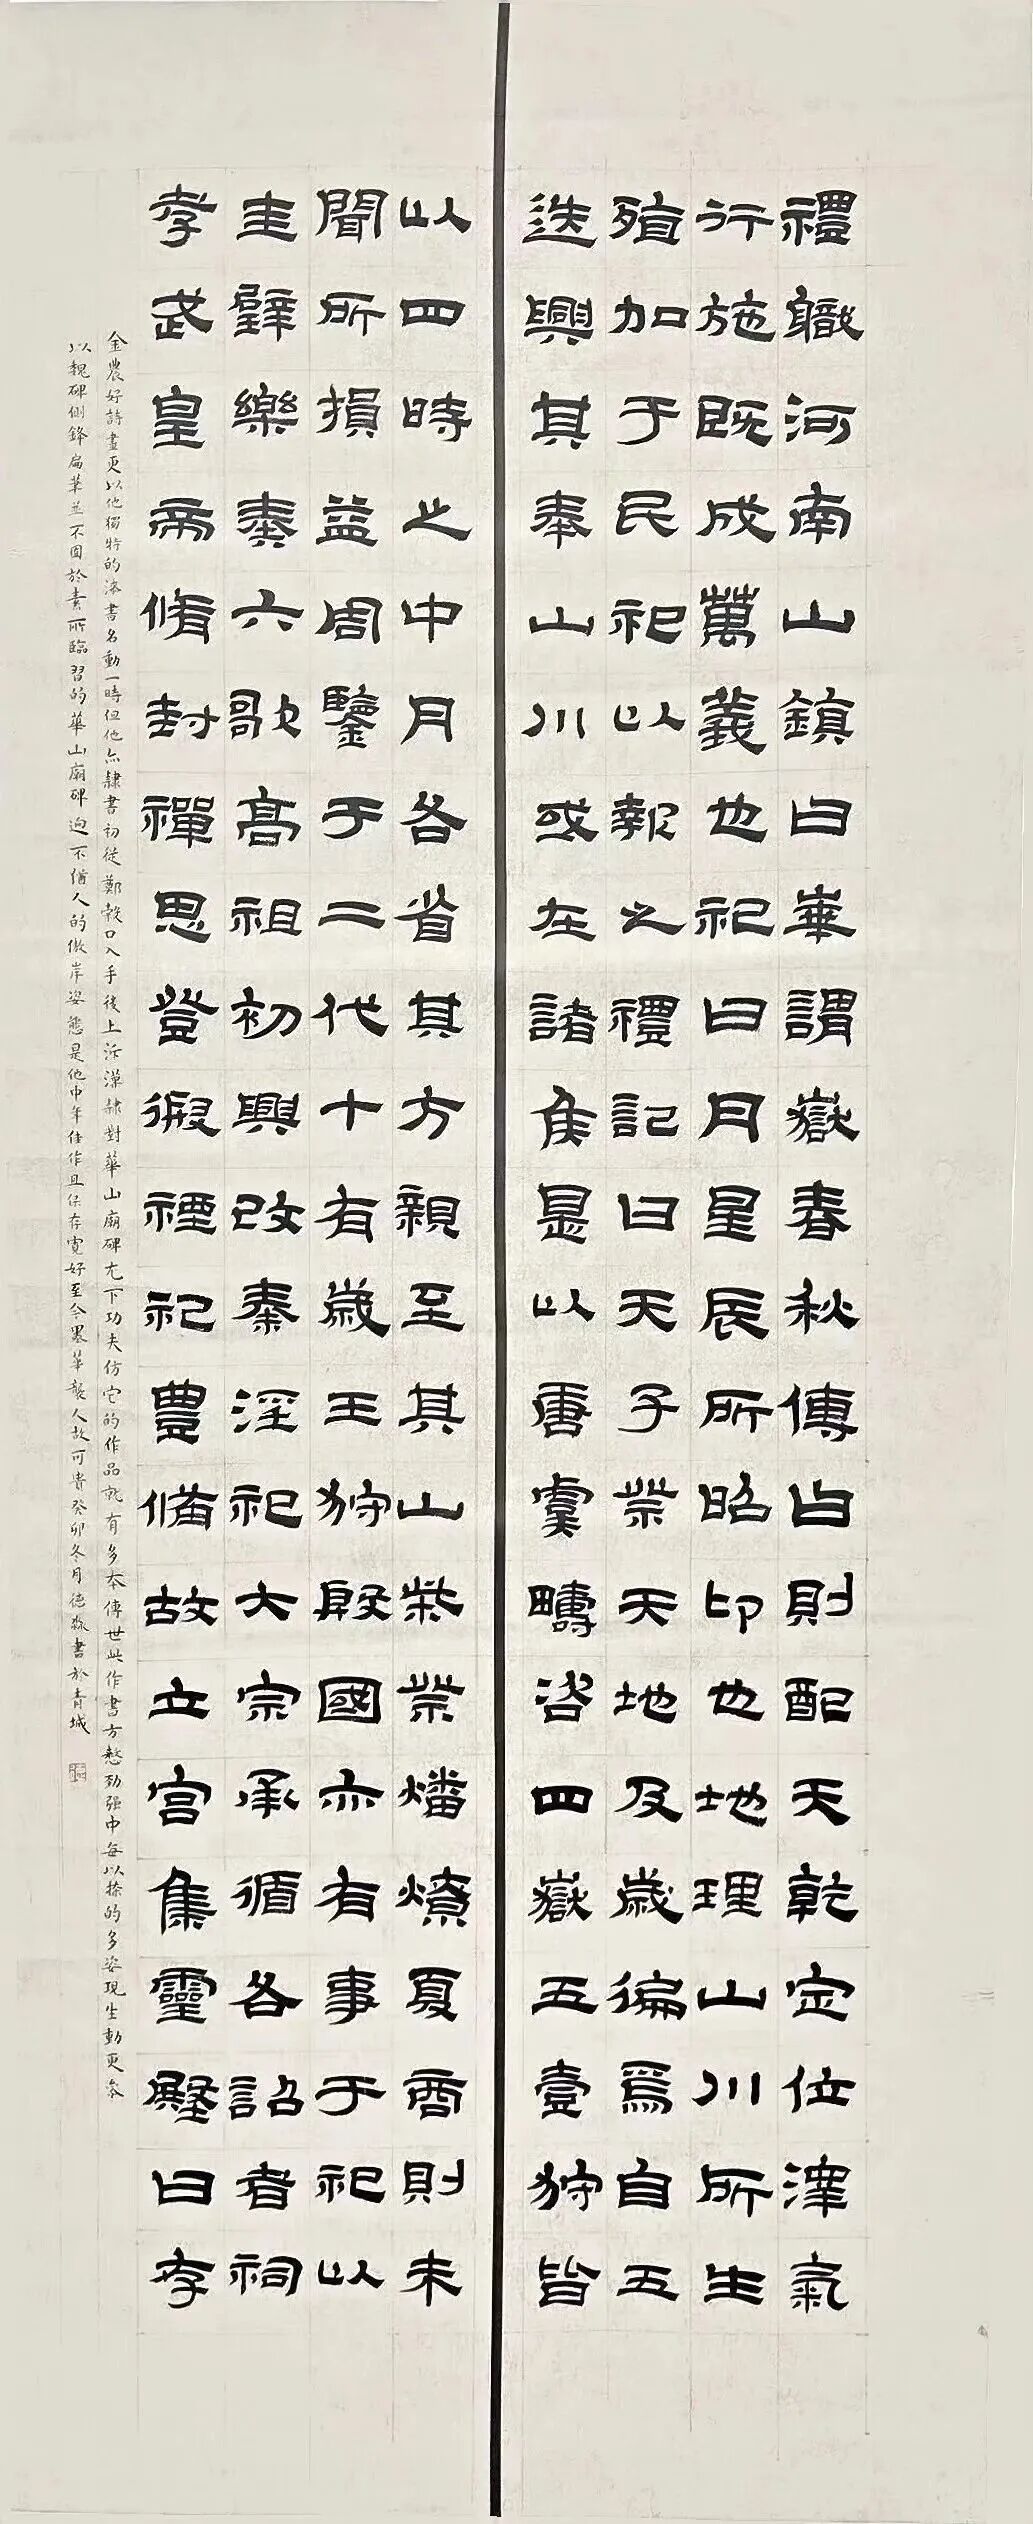 禮職河南山鎮曰華謂嶽春秋傳曰則配天乾定位澤氣
行施既成萬義也祀日月星辰所昭卬也地理山川所生
殖加于民祀以報之禮記曰天子祭天地及歲徧焉自五
迭興其奉山川或在諸侯是以唐虞疇咨四嶽五壹狩皆
以四時之中月各省其方親至其山柴祭燔燎夏商則未
聞所損益周鑒于二代十有歲王狩殷國亦有事于祀以
圭璧樂奏六歌高祖初興改秦淫祀大宗承循各詔者祠
孝武皇帝脩封禪思登徦禋祀豊備故立宮集靈殿曰存
金農好詩畫更以他獨特的漆書名動一時但他亦隸書初從鄭穀口入手後上泝漢隸對華山廟碑尤下功夫仿它的作品就有多本傳世此作書方整勁強中每以捺的多姿現生動更參
以魏碑側鋒扁筆並不囿於素所臨習的華山廟碑迥不猶人的傲岸姿態是他中年佳作且保存寬好至今墨華襲人故可貴癸卯冬月德書於青城